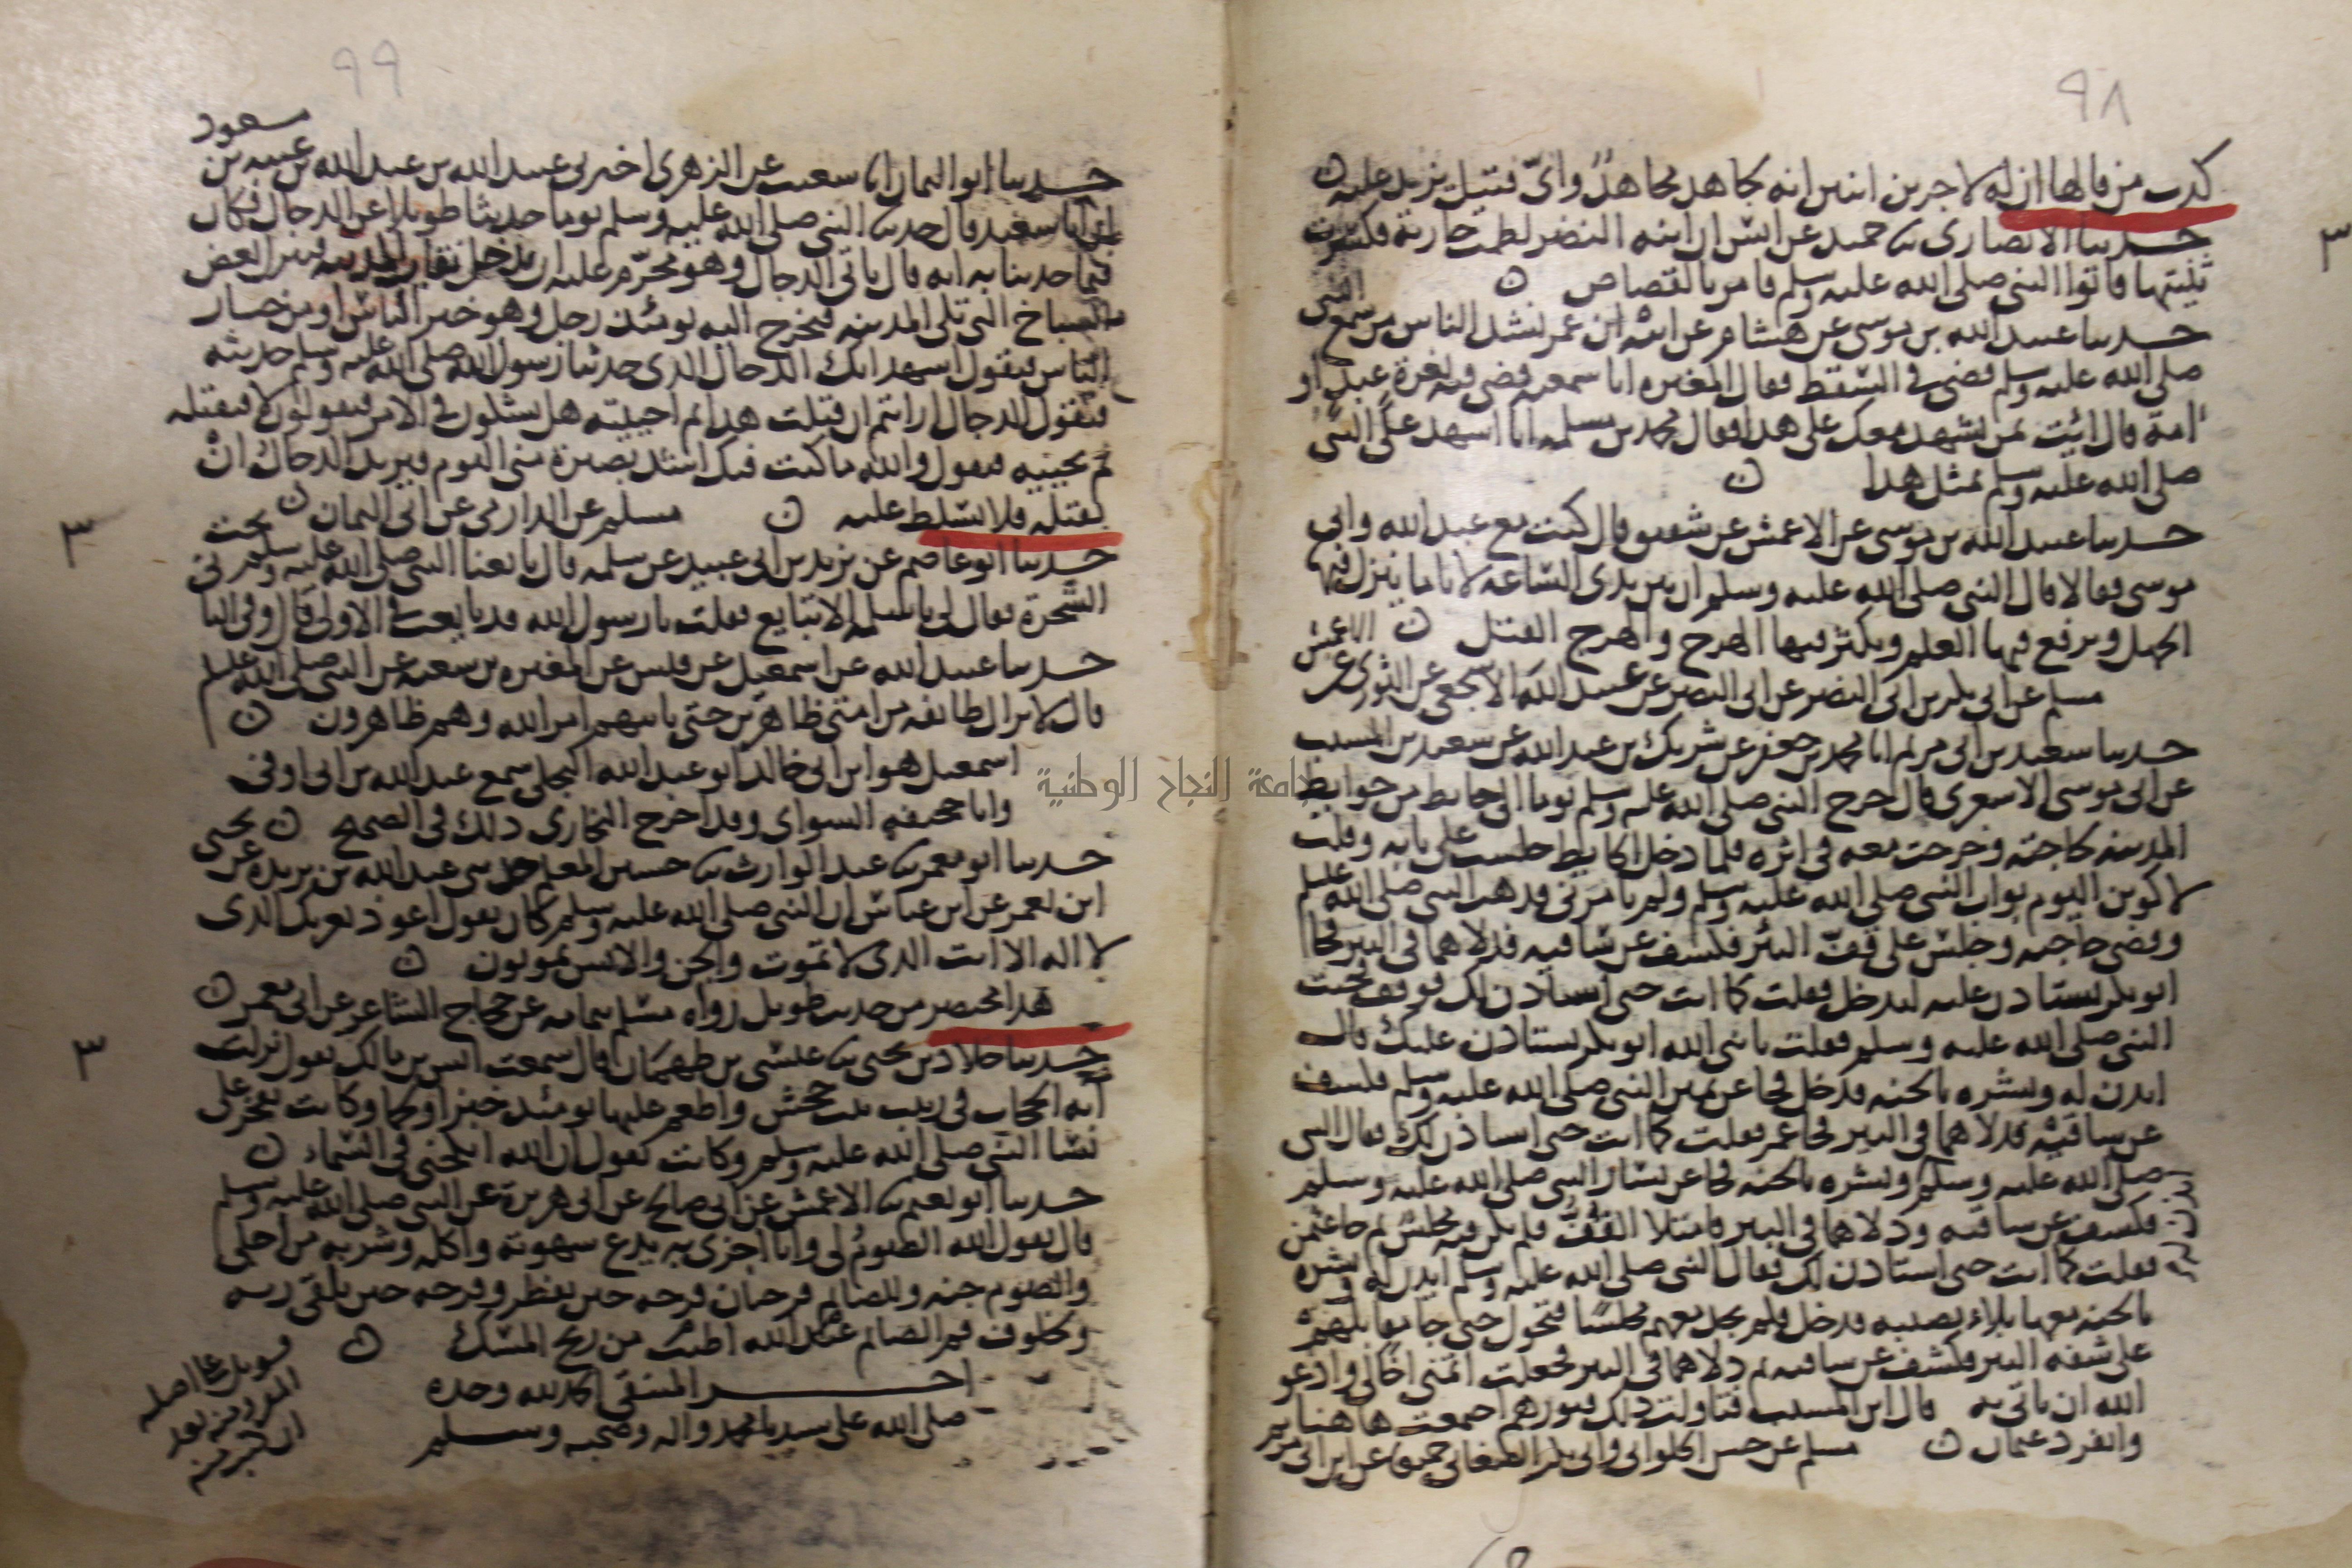 ٩٨
كذب من قالها ان له لاجرين اثنين انه لجاهد مجاهد واي قتيل يزيد عليه
حدثنا الانصاري ثنا حميد عن انس ان ابنة النضر لطمت جارية فكسرت
ثنيتها فاتوا النبي صلى الله عليه وسلم فامر بالقصاص
حدثنا عبيد الله بن موسى عن هشام عن ابيه ان عمر نشد الناس من سمع النبي
صلى الله عليه وسلم قضى في السقط فقال المغيرة انا سمعته قضى فيه بغرة عبد او
امة قال ائت بمن يشهد معك على هذا فقال محمد بن مسلمة انا اشهد على النبي
صلى الله عليه وسلم بمثل هذا
حدثنا عبيد الله بن موسى عن الاعمش عن شقيق قال كنت مع عبد الله وابي
موسى فقالا قال النبي صلى الله عليه وسلم ان بين يدي الساعة لاياما ينزل فيها
الجهل ويرفع فيها العلم ويكثر فيها الهرج والهرج القتل
مسلم عن ابي بكر بن ابي النضر عن ابي النضر عن عبيد الله الاشجعي عن الثوري عن الاعمش
حدثنا سعيد بن ابي مريم انا محمد بن جعفر عن شريك بن عبد الله عن سعيد بن المسيب
عن ابي موسى الاشعري قال خرج النبي صلى الله عليه وسلم يوما الى حايط من حوايط
المدينة لحاجته وخرجت معه في اثره فلما دخل الحايط جلست على بابه وقلت
لاكونن اليوم بواب النبي صلى الله عليه وسلم ولم يامرني فذهب النبي صلى الله عليه وسلم
وقضى حاجته وجلس على قف البئر فكشف عن ساقيه فدلاهما في البير فجا
ابو بكر يستاذن عليه ليدخل فقلت كما انت حتى استاذن لك فوقف فجيت
النبي صلى الله عليه وسلم فقلت يا نبي الله ابو بكر يستاذن عليك قال
ايذن له وبشره بالجنة فدخل فجا عن يمين النبي صلى الله عليه وسلم فكشف
عن ساقيه فدلاهما في البير فجا عمر فقلت كما انت حتى استاذن لك فقال النبي
صلى الله عليه وسلم وبشره بالجنة فجا عن يسار النبي صلى الله عليه وسلم
ايذن له
فكشف عن ساقيه ودلاهما في البير فامتلا القف فلم يكن فيه مجلس ثم جا عثمن
فقلت كما انت حتى استاذن لك فقال النبي صلى الله عليه وسلم ايذن له وبشره
بالجنة معها بلاء يصيبه فدخل فلم يجد معهم مجلسا فتحول حتى جا مقابلهم
على شفة البير فكشف عن ساقيه ثم دلاهما في البير فجعلت اتمنى اخا لي وادعو
الله ان ياتي به قال ابن المسيب فتاولت ذلك قبورهم اجتمعت هاهنا
وانفرد عثمان مسلم عن حسن الحلواني وابي بكر الصغاني جميعا عن ابن ابي مريم
٣
٩٩
حدثنا ابو اليمان انا شعيب عن الزهري اخبرني عبيد الله بن عبد الله بن عتبة بن مسعود
ان ابا سعيد قال حدثنا النبي صلى الله عليه وسلم يوما حديثا طويلا عن الدجال فكان
فيما حدثنا به انه قال ياتي الدجال وهو محرم عليه ان يدخل نقاب المدينة فينزل بعض
السباخ التي تلي المدينة فيخرج اليه يومئذ رجل وهو خير الناس او من خيار
الناس فيقول اشهد انك الدجال الذي حدثنا رسول الله صلى الله عليه وسلم حديثه
فيقول الدجال ارايتم ان قتلت هذا ثم احييته هل تشكون في الامر فيقولون لا فيقتله
ثم يحييه فيقول والله ما كنت فيك اشد بصيرة مني اليوم فيريد الدجال ان
يقتله فلا يسلط عليه مسلم عن الدارمي عن ابي اليمان
حدثنا ابو عاصم عن يزيد بن ابي عبيد عن سلمة قال بايعنا النبي صلى الله عليه وسلم تحت
الشجرة فقال لي يا سلمة الا تبايع فقلت يا رسول الله قد بايعت في الاولى قال وفي الثاني
حدثنا عبيد الله عن اسمعيل عن قيس عن المغيرة بن شعبة عن النبي صلى الله عليه وسلم
قال لا يزال طائفة من امتي ظاهرين حتى ياتيهم امر الله وهم ظاهرون
اسمعيل هو ابن ابي خالد ابو عبد الله البجلي سمع عبد الله بن ابي اوفى
وابا جحيفة السواي وقد اخرج البخاري ذلك في الصحيح
حدثنا ابو معمر ثنا عبد الوارث ثنا حسين المعلم حدثني عبد الله بن بريدة عن يحيى
ابن يعمر عن ابن عباس ان النبي صلى الله عليه وسلم كان يقول اعوذ بعزتك الذي
لا اله الا انت الذي لا تموت والجن والانس يموتون
هذا مختصر من حديث طويل رواه مسلم بتمامه عن حجاج الشاعر عن ابي معمر
حدثنا خلاد بن يحيى ثنا عيسى بن طهمان قال سمعت انس بن مالك يقول نزلت
اية الحجاب في زينب بنت جحش واطعم عليها يومئذ خبزا ولحما وكانت تفخر على
نسا النبي صلى الله عليه وسلم وكانت تقول ان الله انكحني في السماء
حدثنا ابو نعيم ثنا الاعمش عن ابي صالح عن ابي هريرة عن النبي صلى الله عليه وسلم
قال يقول الله الصوم لي وانا اجزي به يدع شهوته واكله وشربه من اجلي
والصوم جنة وللصائم فرحتان فرحة حين يفطر وفرحة حين يلقى ربه
ولخلوف فم الصائم عند الله اطيب من ريح المسك
اخر المنتقى الحمد لله وحده
صلى الله على سيدنا محمد واله وصحبه وسلم
قوبل
٣
٣
جامعة النجاح الوطنية